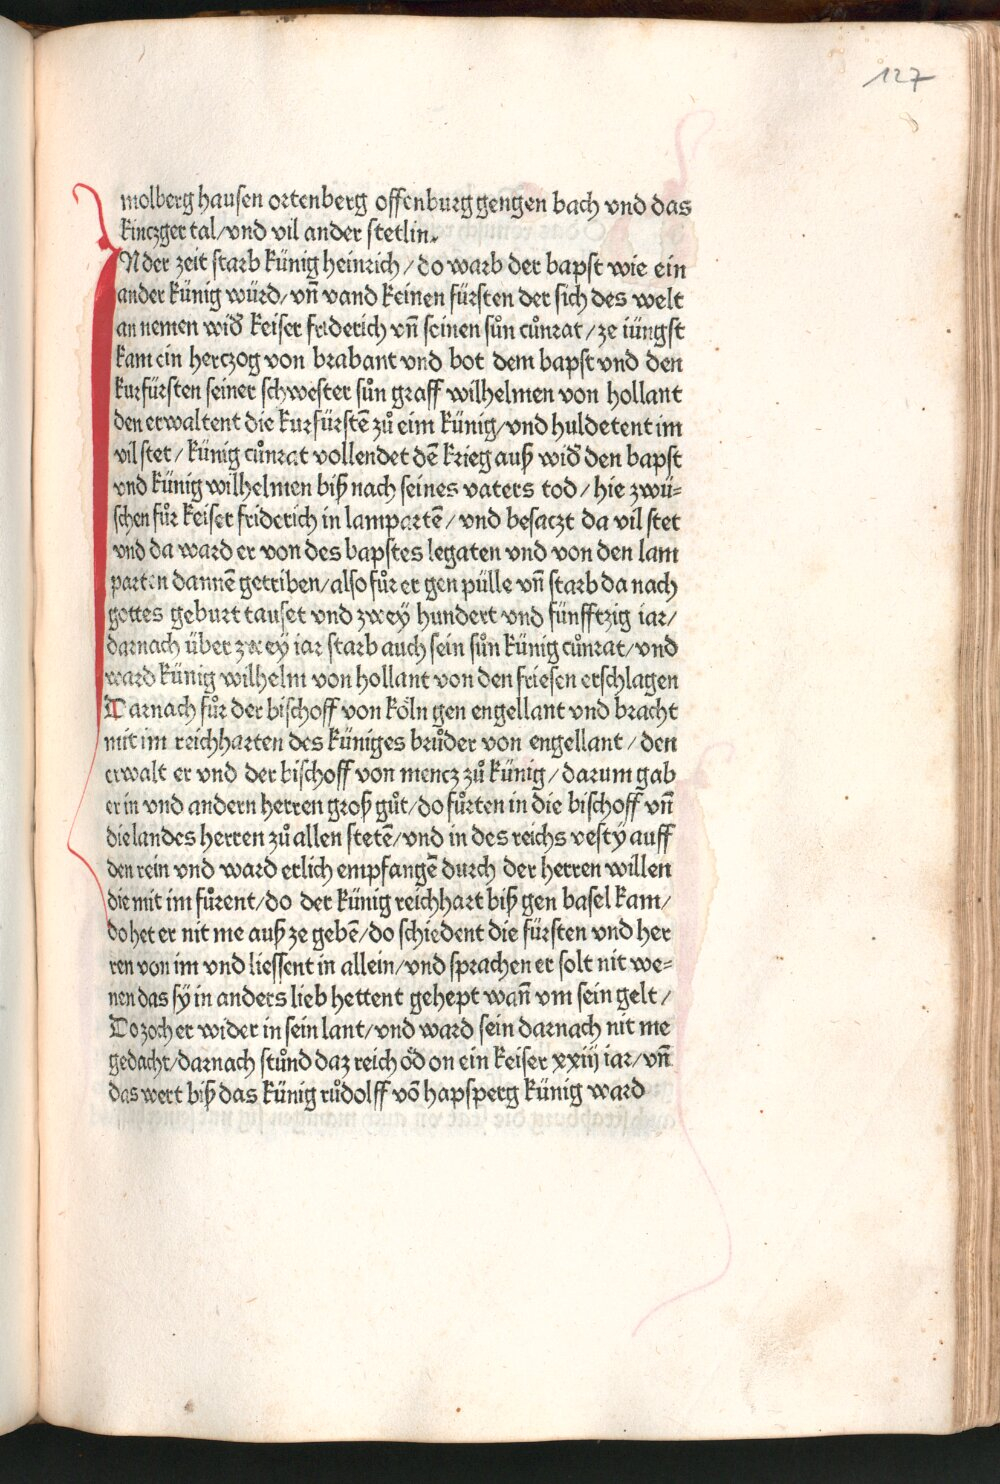 127
molberg hausen ortenberg offenburg gengen bach vnd das
kinczger tal/vnd vil ander stetlin.
INder zeit starb künig heinrich/do warb der bapst wie ein
ander künig würd/vn̄ vand keinen fürsten der sich des welt
an nemen wid̄ keiser friderich vn̄ seinen sůn cůnrat/ze iüngst
kam ein herczog von brabant vnd bot dem bapst vnd den
kurfürsten seiner schwester sůn graff wilhelmen von hollant
den erwaltent die kurfürstē zů eim künig/vnd huldetent im
vil stet/künig cůnrat vollendet dē krieg auß wid̄ den bapst
vnd künig wilhelmen biß nach seines vaters tod/hie zwü⸗
schen fůr keiser friderich in lampartē/vnd besaczt da vil stet
vnd da ward er von des bapstes legaten vnd von den lam
parten dannē getriben/also fůr er gen pülle vn̄ starb da nach
gottes geburt tauset vnd zwey hundert vnd fünfftzig iar/
darnach über zweÿ iar starb auch sein sůn künig cůnrat/vnd
ward künig wilhelm von hollant von den friesen erschlagen
Darnach fůr der bischoff von köln gen engellant vnd bracht
mit im reichharten des küniges brůder von engellant/den
erwalt er vnd der bischoff von mencz zů künig/darum gab
er in vnd andern herren groß gůt/do fůrten in die bischoff vn̄
die landes herren zů allen stetē/vnd in des reichs vesty auff
den rein vnd ward erlich empfangē durch der herren willen
die mit im fůrent/do der künig reichhart biß gen basel kam/
do het er nit me auß ze gebē/do schiedent die fürsten vnd her
ren von im vnd liessent in allein/vnd sprachen er solt nit we⸗
nen das sÿ in anders lieb hettent gehept wan̄ vm sein gelt/
Do zoch er wider in sein lant/vnd ward sein darnach nit me
gedacht/darnach stůnd daz reich öd on ein keiser xxiij iar/vn̄
das wert biß das künig růdolff vō hapsperg künig ward